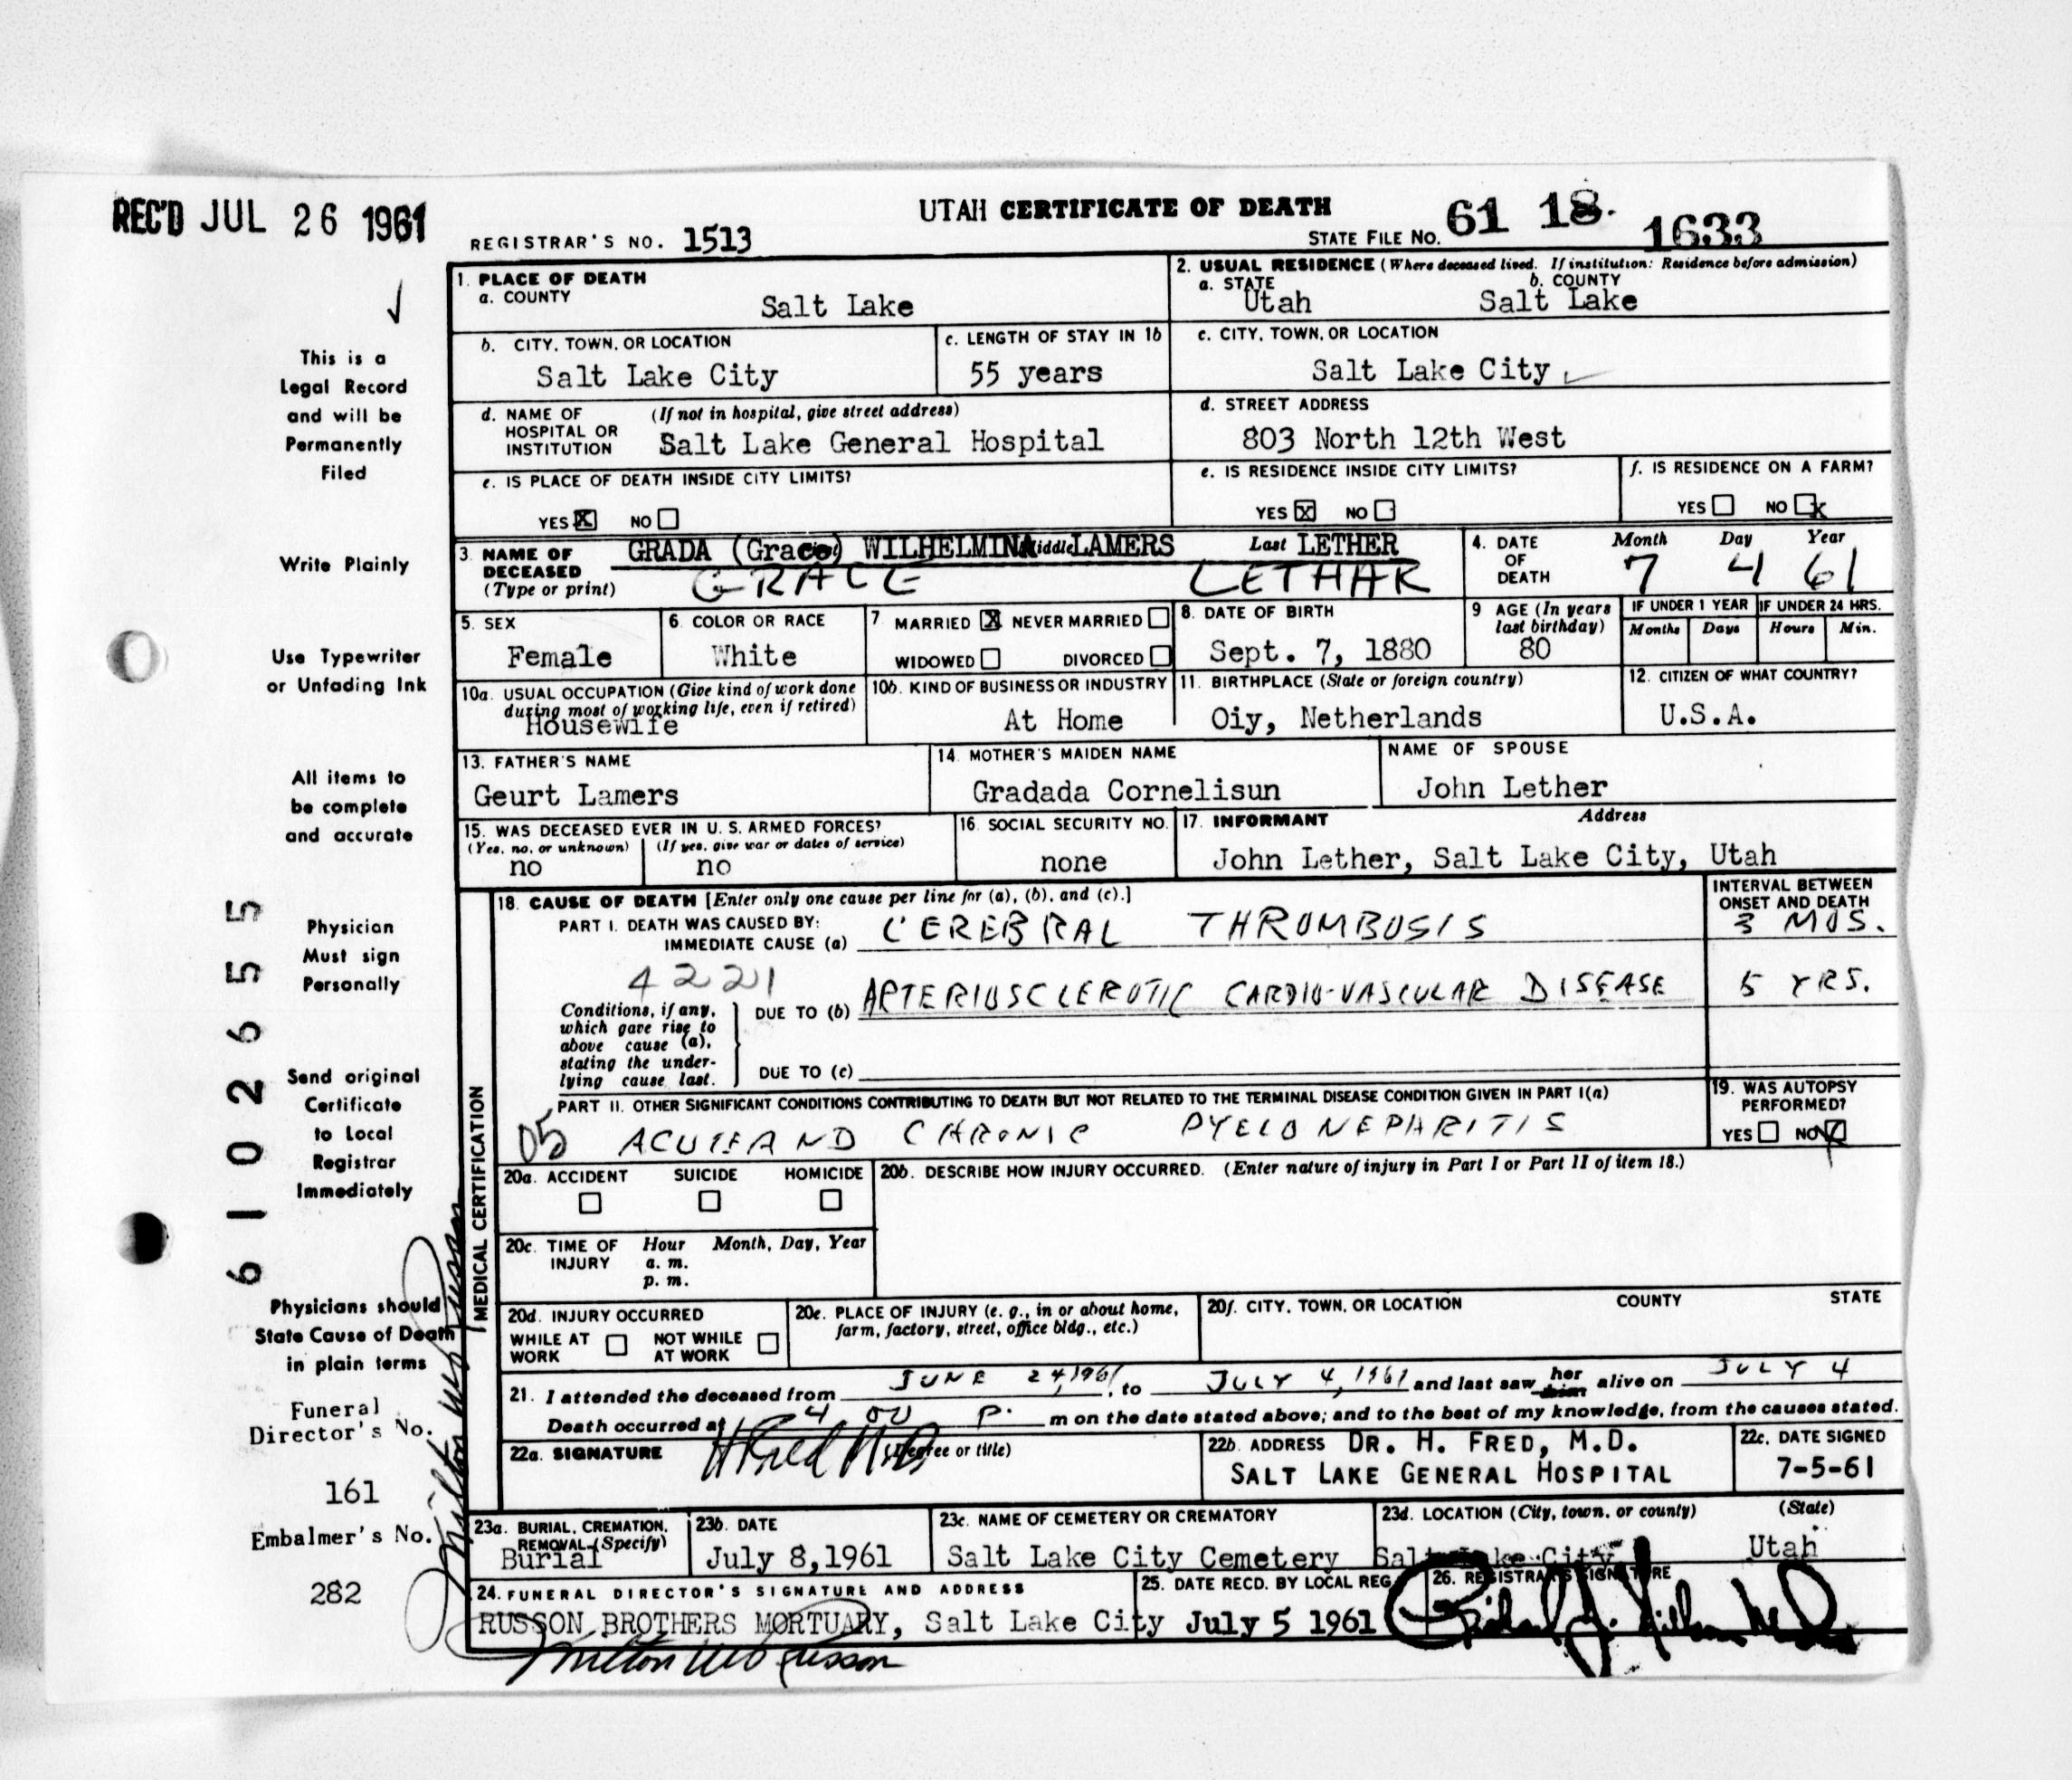 REC'D JUL 26 1961
UTAH CERTIFICATE OF DEATH
REGISTRAR'S NO. 1513
STATE FILE NO. 61 18 1633
This is a
Legal Record
and will be
Permanently
Filed
Write Plainly
Use Typewriter
or Unfading Ink
All items to
be complete
and accurate
Physician
Must sign
Personally
Send original
Certificate
to Local
Registrar
Immediately
Physicians should
State Cause of Death
in plain terms
Funeral
Director's No.
161
Embalmer's No.
282
61026555
1. PLACE OF DEATH
a. COUNTY
Salt Lake
2. USUAL RESIDENCE (Where deceased lived. If institution: Residence before admission)
a. STATE b. COUNTY
Utah Salt Lake
b. CITY, TOWN, OR LOCATION
Salt Lake City
c. LENGTH OF STAY IN 1b
55 years
c. CITY, TOWN, OR LOCATION
Salt Lake City
d. NAME OF (If not in hospital, give street address)
HOSPITAL OR
INSTITUTION Salt Lake General Hospital
d. STREET ADDRESS
803 North 12th West
e. IS PLACE OF DEATH INSIDE CITY LIMITS?
YES X NO
e. IS RESIDENCE INSIDE CITY LIMITS?
YES X NO
f. IS RESIDENCE ON A FARM?
YES NO X
3. NAME OF
DECEASED
(Type or print)
GRADA (Grace) WILHELMINA Middle LAMERS Last LETHER
GRACE LETHAR
4. DATE
OF
DEATH
Month Day Year
7 4 61
5. SEX
Female
6. COLOR OR RACE
White
7 MARRIED X NEVER MARRIED
WIDOWED DIVORCED
8. DATE OF BIRTH
Sept. 7, 1880
9 AGE (In years
last birthday)
80
IF UNDER 1 YEAR IF UNDER 24 HRS.
Months Days Hours Min.
10a. USUAL OCCUPATION (Give kind of work done
during most of working life, even if retired)
Housewife
10b. KIND OF BUSINESS OR INDUSTRY
At Home
11. BIRTHPLACE (State or foreign country)
Oiy, Netherlands
12. CITIZEN OF WHAT COUNTRY?
U.S.A.
13. FATHER'S NAME
Geurt Lamers
14. MOTHER'S MAIDEN NAME
Gradada Cornelisun
NAME OF SPOUSE
John Lether
15. WAS DECEASED EVER IN U. S. ARMED FORCES?
(Yes, no, or unknown) (If yes, give war or dates of service)
no no
16. SOCIAL SECURITY NO.
none
17. INFORMANT Address
John Lether, Salt Lake City, Utah
MEDICAL CERTIFICATION
18. CAUSE OF DEATH [Enter only one cause per line for (a), (b), and (c).]
INTERVAL BETWEEN
ONSET AND DEATH
PART I. DEATH WAS CAUSED BY:
IMMEDIATE CAUSE (a) CEREBRAL THROMBOSIS 3 MOS.
4221
Conditions, if any,
which gave rise to
above cause (a),
stating the under-
lying cause last.
DUE TO (b) ARTERIOSCLEROTIC CARDIO-VASCULAR DISEASE 5 YRS.
DUE TO (c)
PART II. OTHER SIGNIFICANT CONDITIONS CONTRIBUTING TO DEATH BUT NOT RELATED TO THE TERMINAL DISEASE CONDITION GIVEN IN PART I(a)
05 ACUTE AND CHRONIC PYELONEPHRITIS
19. WAS AUTOPSY
PERFORMED?
YES NO X
20a. ACCIDENT SUICIDE HOMICIDE
20b. DESCRIBE HOW INJURY OCCURRED. (Enter nature of injury in Part I or Part II of item 18.)
20c. TIME OF Hour Month, Day, Year
INJURY a. m.
p. m.
20d. INJURY OCCURRED
WHILE AT NOT WHILE
WORK AT WORK
20e. PLACE OF INJURY (e. g., in or about home,
farm, factory, street, office bldg., etc.)
20f. CITY, TOWN, OR LOCATION COUNTY STATE
21. I attended the deceased from JUNE 24, 1961, to JULY 4, 1961 and last saw her him alive on JULY 4
Death occurred at 4 00 P. m on the date stated above; and to the best of my knowledge, from the causes stated.
22a. SIGNATURE H Fred M.D. (Degree or title)
22b. ADDRESS DR. H. FRED, M.D.
SALT LAKE GENERAL HOSPITAL
22c. DATE SIGNED
7-5-61
23a. BURIAL, CREMATION,
REMOVAL (Specify)
Burial
23b. DATE
July 8,1961
23c. NAME OF CEMETERY OR CREMATORY
Salt Lake City Cemetery
23d. LOCATION (City, town, or county) (State)
Salt Lake City Utah
24. FUNERAL DIRECTOR'S SIGNATURE AND ADDRESS
RUSSON BROTHERS MORTUARY, Salt Lake City
25. DATE RECD. BY LOCAL REG.
July 5 1961
26. REGISTRAR'S SIGNATURE